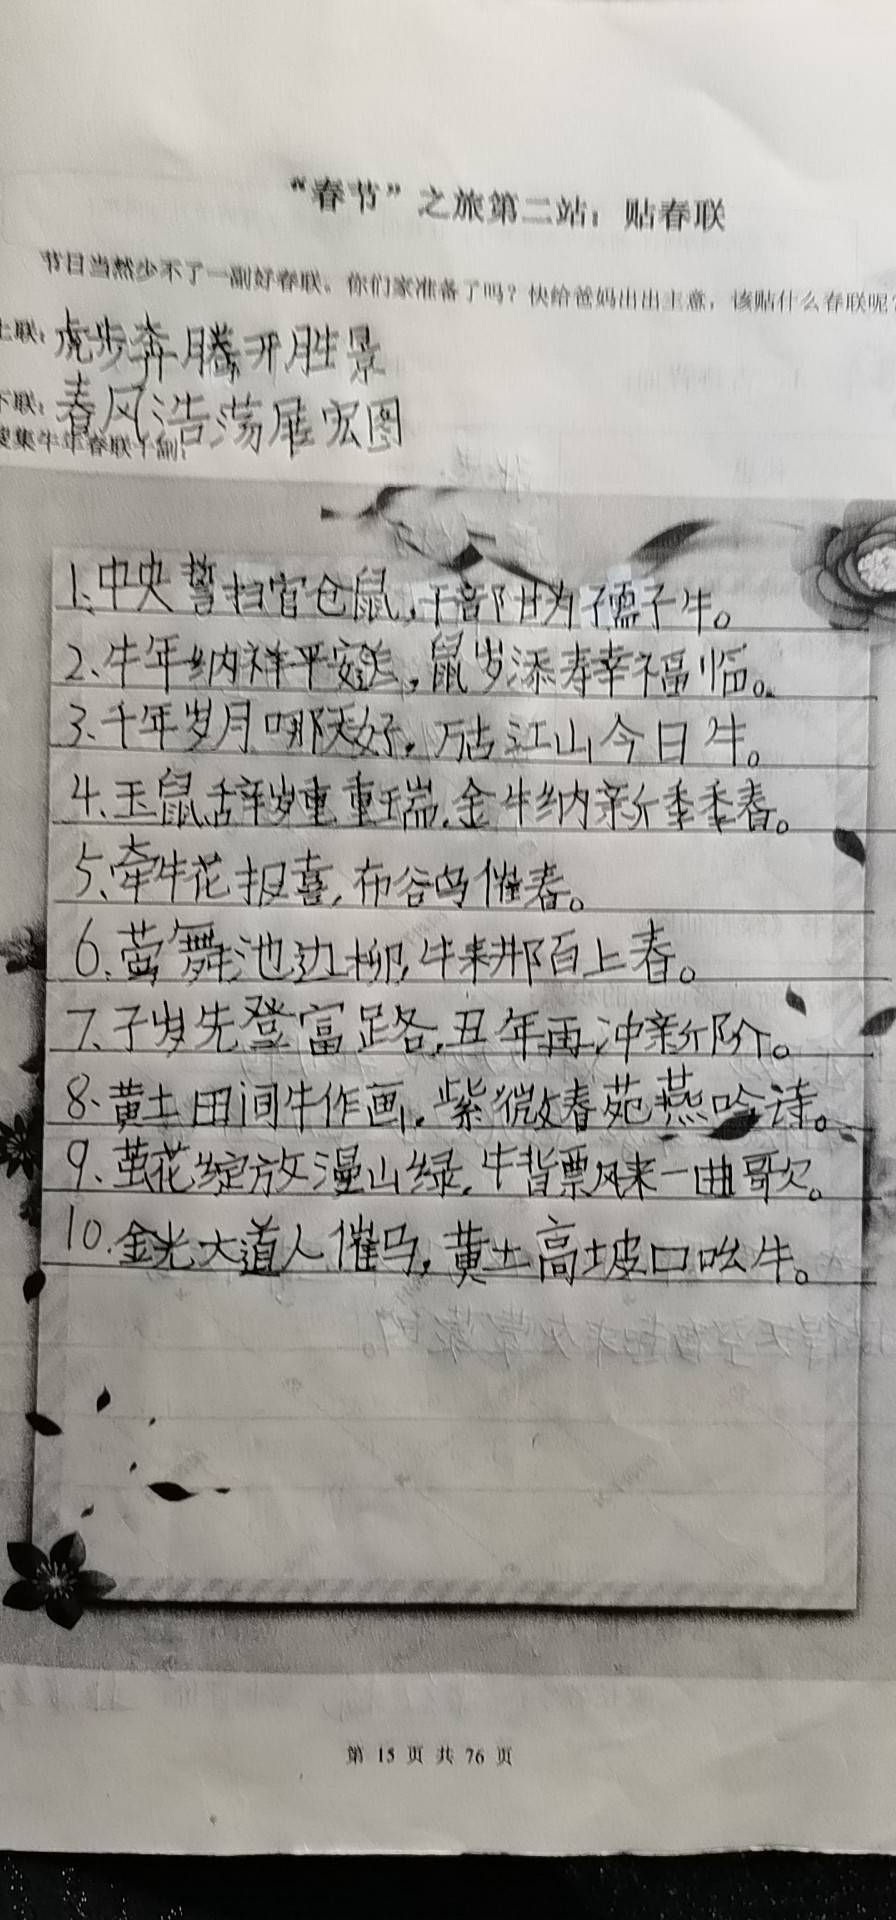 “春节”之旅第二站：贴春联
节日当然少不了一副好春联。你们家准备了吗？快给爸妈出出主意，该贴什么春联呢？
上联：虎步奔腾开胜景
下联：春风浩荡展宏图
搜集牛年春联十副：
1、中央誓扫官仓鼠，干部甘为孺子牛。
2、牛年纳祥平安送，鼠岁添寿幸福临。
3、千年岁月哪天好，万古江山今日牛。
4、玉鼠辞岁重重瑞，金牛纳新季季春。
5、牵牛花报喜，布谷鸟催春。
6、莺舞池边柳，牛耕陌上春。
7、子岁先登富路，丑年再冲新阶。
8、黄土田间牛作画，紫微春苑燕吟诗。
9、茧花绽放漫山绿，牛背飘来一曲歌。
10、金光大道人催马，黄土高坡口吆牛。
第 15 页 共 76 页